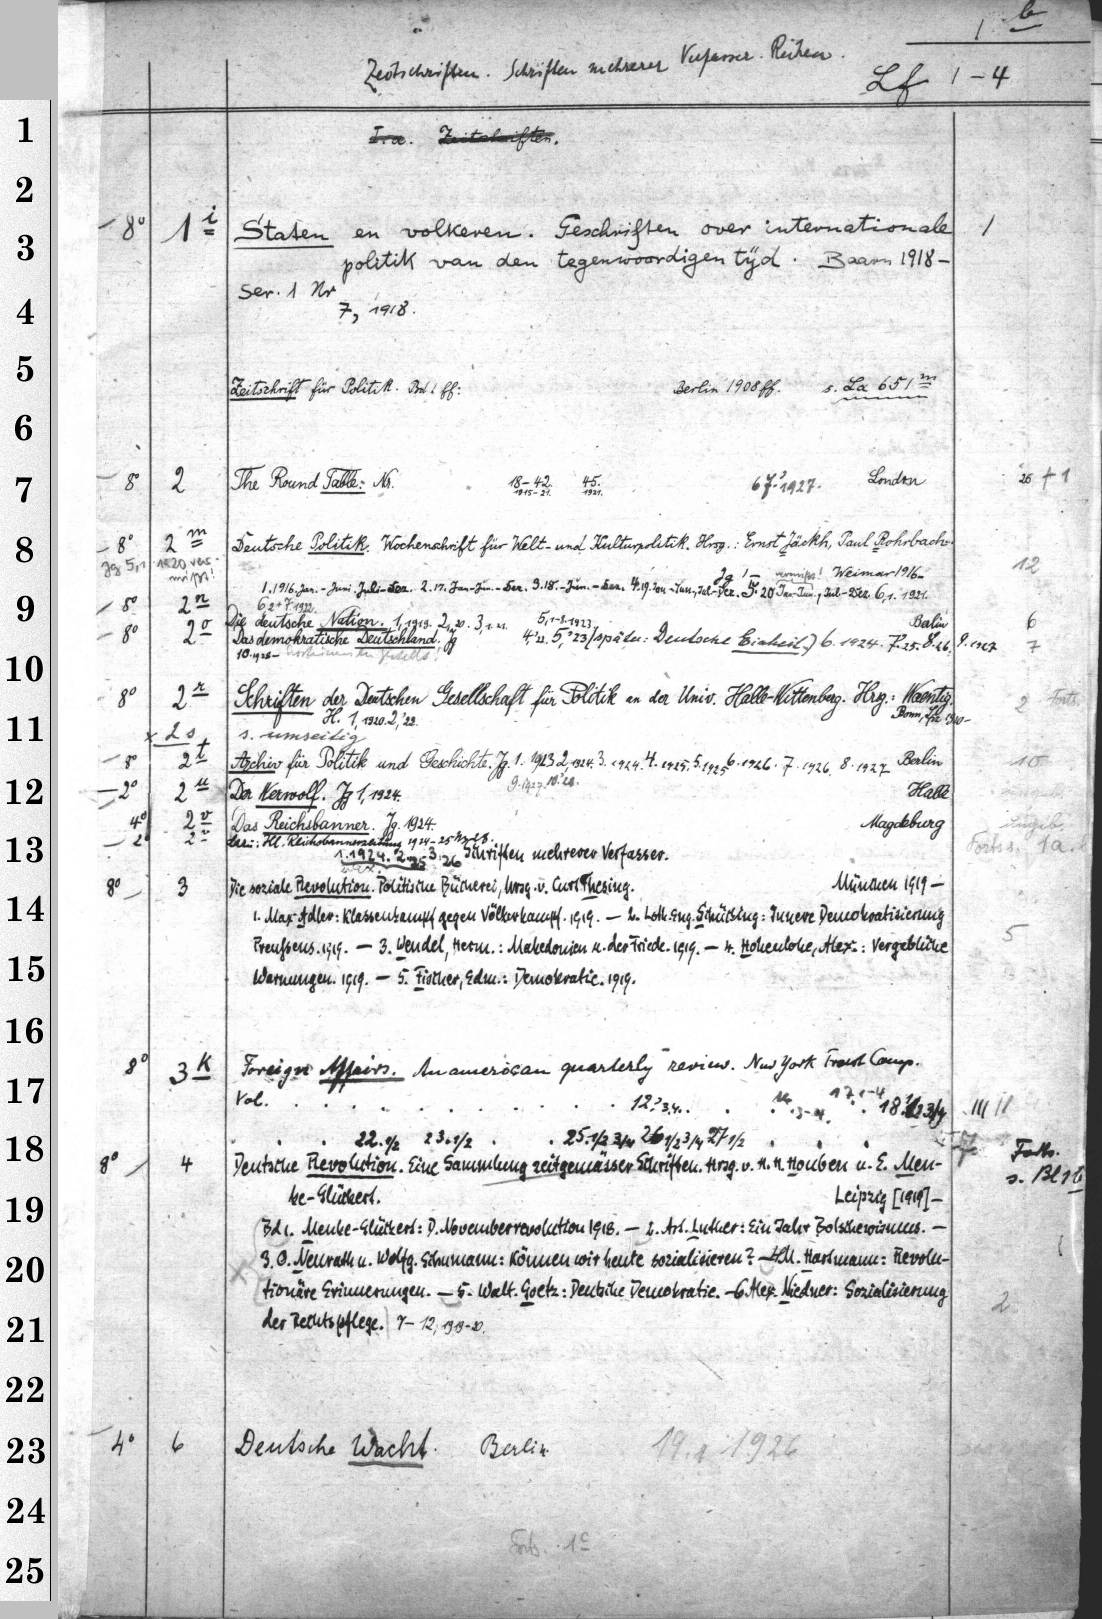 1 b
Zeitschriften. Schriften mehrerer Verfasser. Reihen.
Lf 1-4
I.a. Zeitschriften.
8° 1 i Staten en volkeren. Geschriften over internationale 1
politik van den tegenwoordigen tijd. Baarn 1918-
Ser. 1 Nr
7, 1918.
Zeitschrift für Politik. Bd 1 ff: Berlin 1908 ff. s. La 651 m
8° 2 The Round Table: Nr. 18-42. 45. 67. 1927. London 26 + 1
1915-21. 1921.
8° 2 m Deutsche Politik. Wochenschrift für Welt- und Kulturpolitik. Hrsg.: Ernst Jäckh, Paul Rohrbach.
Jg 5, 1 1920 vermißt! Jg 1- vermißt! Weimar 1916- 12
1. 1916. Jan. - Juni, Juli-Dez. 2.17. Jan-Jun. - Dez. 3.18. - Jun. - Dez. 4.19. Jan-Jun., Jul-Dez. 5. 20 Jan-Jun., Jul-Dez. 6,1. 1921.
8° 2 n Die deutsche Nation. 1,1919. 2,20. 3,1.21. 5,1-8.1923 Berlin 6
8° 2 o Das demokratische Deutschland. Jg 4'22, 5,'23 (später: Deutsche Einheit.) 6. 1924. 7.25. 8.26. 9. 1927 7
10.1928-
8° 2 r Schriften der Deutschen Gesellschaft für Politik an der Univ. Halle-Wittenberg. Hrg.: Waentig. 2 Forts.
H. 1, 1920. 2,'22. Bonn, Lpz 1920-
x 2 s s. umseitig
8° 2 t Archiv für Politik und Geschichte. Jg. 1. 1923 2. 1924. 3. 1924. 4. 1925. 5. 1925 6. 1926. 7. 1926. 8. 1927 Berlin 10
9. 1927. 10.'28.
2° 2 u Der Werwolf. Jg 1, 1924. Halle
4° 2 v Das Reichsbanner. Jg. 1924. Magdeburg
2° 2 v
Ill. Reichsbannerzeitung 1924-25
1. 1924. 2. 25 3. 26 Schriften mehrerer Verfasser. Forts s. 1a.
8° 3 Die soziale Revolution. Politische Bücherei, hrsg. v. Curt Thesing. München 1919 -
1. Max Adler: Klassenkampf gegen Völkerkampf. 1919. — 2. Loth. Eng. Schücking: Innere Demokratisierung
Preußens. 1919. — 3. Wendel, Herm.: Makedonien u. der Friede. 1919. — 4. Hohenlohe, Alex.: Vergebliche 5
Warnungen. 1919. — 5. Fischer, Edm.: Demokratie. 1919.
8° 3 k Foreign Affairs. An american quarterly review. New York
Vol. 12. 3.4. 17 1-4 18. 1/2 3/4
22. 1/2 23. 1/2 25. 1/2 3/4 26 1/2 3/4 27 1/2
8° 4 Deutsche Revolution. Eine Sammlung zeitgemässer Schriften. Hrsg. v. H. H. Houben u. E. Men- Forts.
s. Bl 1 b
ke-Glückert. Leipzig [1919]-
Bd 1. Menke-Glückert: D. Novemberrevolution 1918. — 2. Art. Luther: Ein Jahr Bolschewismus. —
3. O. Neurath u. Wolfg. Schumann: Können wir heute sozialisieren? — 4. M. Hartmann: Revolu-
tionäre Erinnerungen. — 5. Walt. Goetz: Deutsche Demokratie. — 6. Alex. Niedner: Sozialisierung 2
der Rechtspflege. 7-12, 1919-20.
4° 6 Deutsche Wacht. Berlin 19. 1926
Forts. 1 c
1
2
3
4
5
6
7
8
9
10
11
12
13
14
15
16
17
18
19
20
21
22
23
24
25